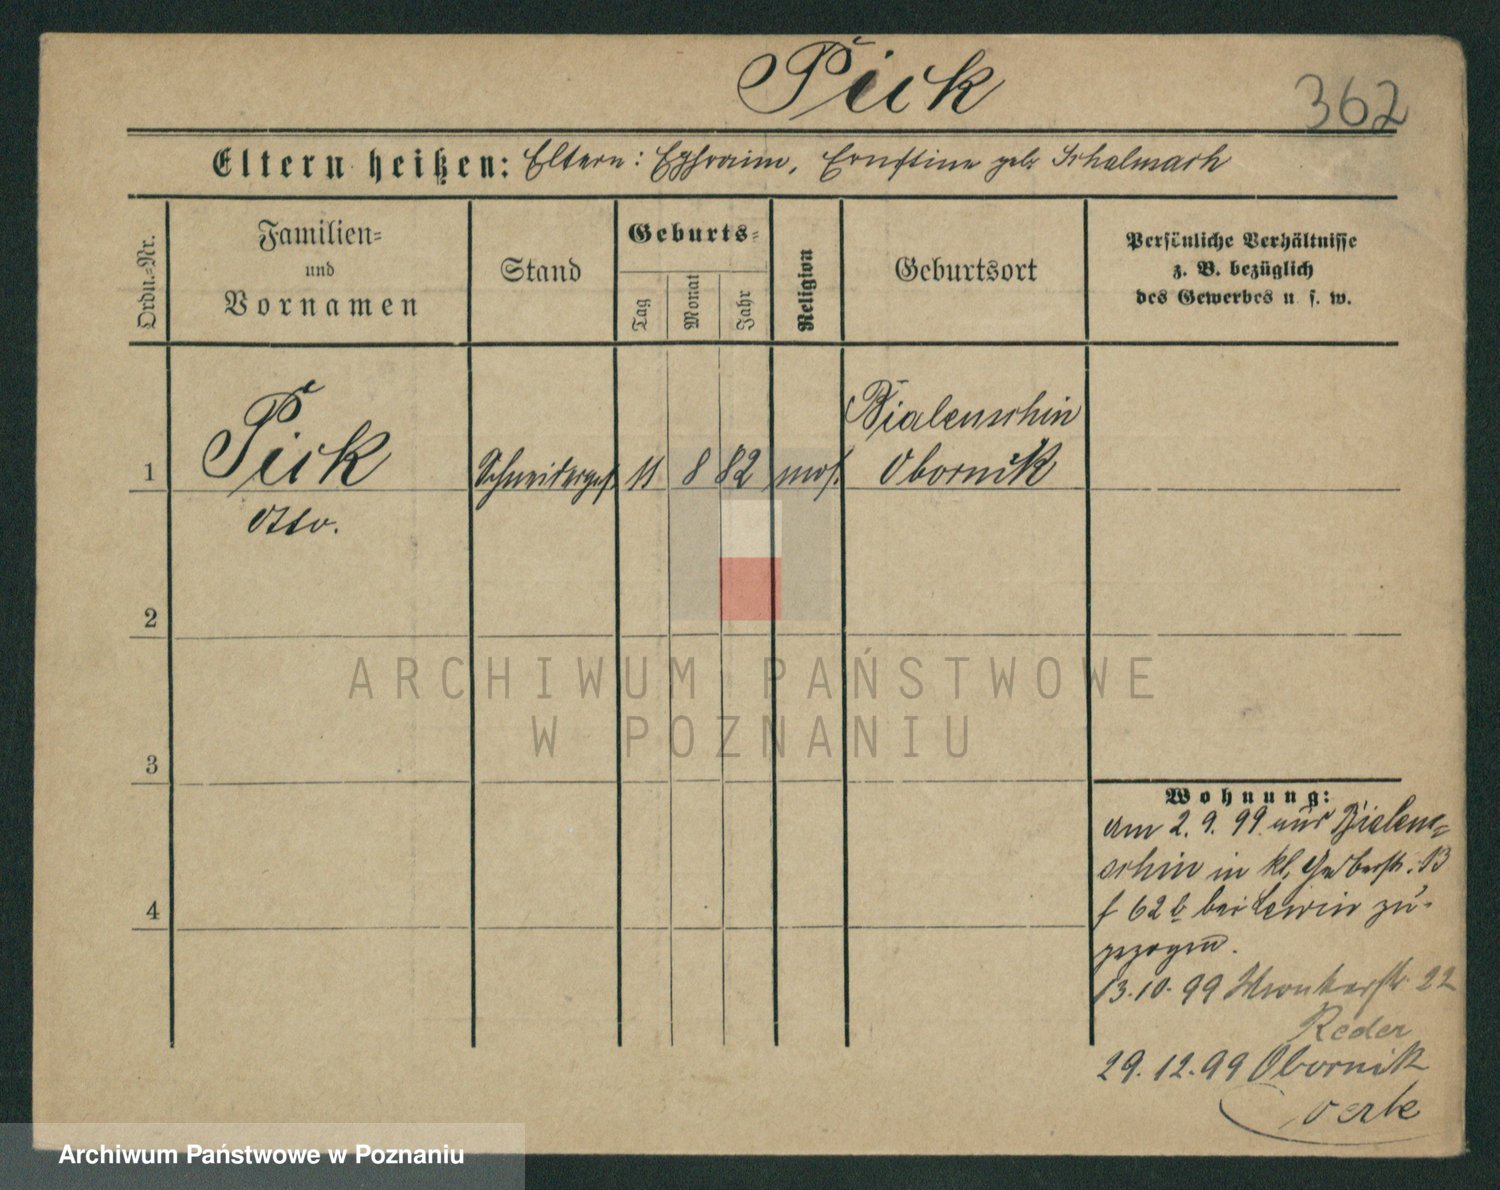 Pick
362
Eltern heißen: Eltern: Ephraim, Ernstine geb. Schalmach
Ordn.=Nr.
Familien=
und
Vornamen
Stand
Geburts=
Tag
Monat
Jahr
Religion
Geburtsort
Persönliche Verhältnisse
z. B. bezüglich
des Gewerbes u. s. w.
Bialenschin
1 Pick Schneiderges. 11 8 82 mos. Obornik
Otto.
2
ARCHIWUM PAŃSTWOWE
W POZNANIU
3
4
Wohnung:
Am 2. 9. 99 aus Bialen=
schin in kl. Gerberstr. 13
f 62 b bei Lewin zu=
gezogen.
13.10.99 Wronkerstr. 22
Reder
29.12.99 Obornik
Archiwum Państwowe w Poznaniu